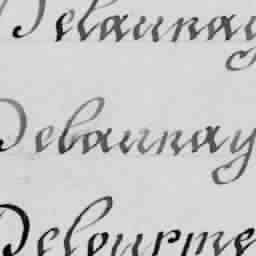 Delaunay
Debaunay
Delourme